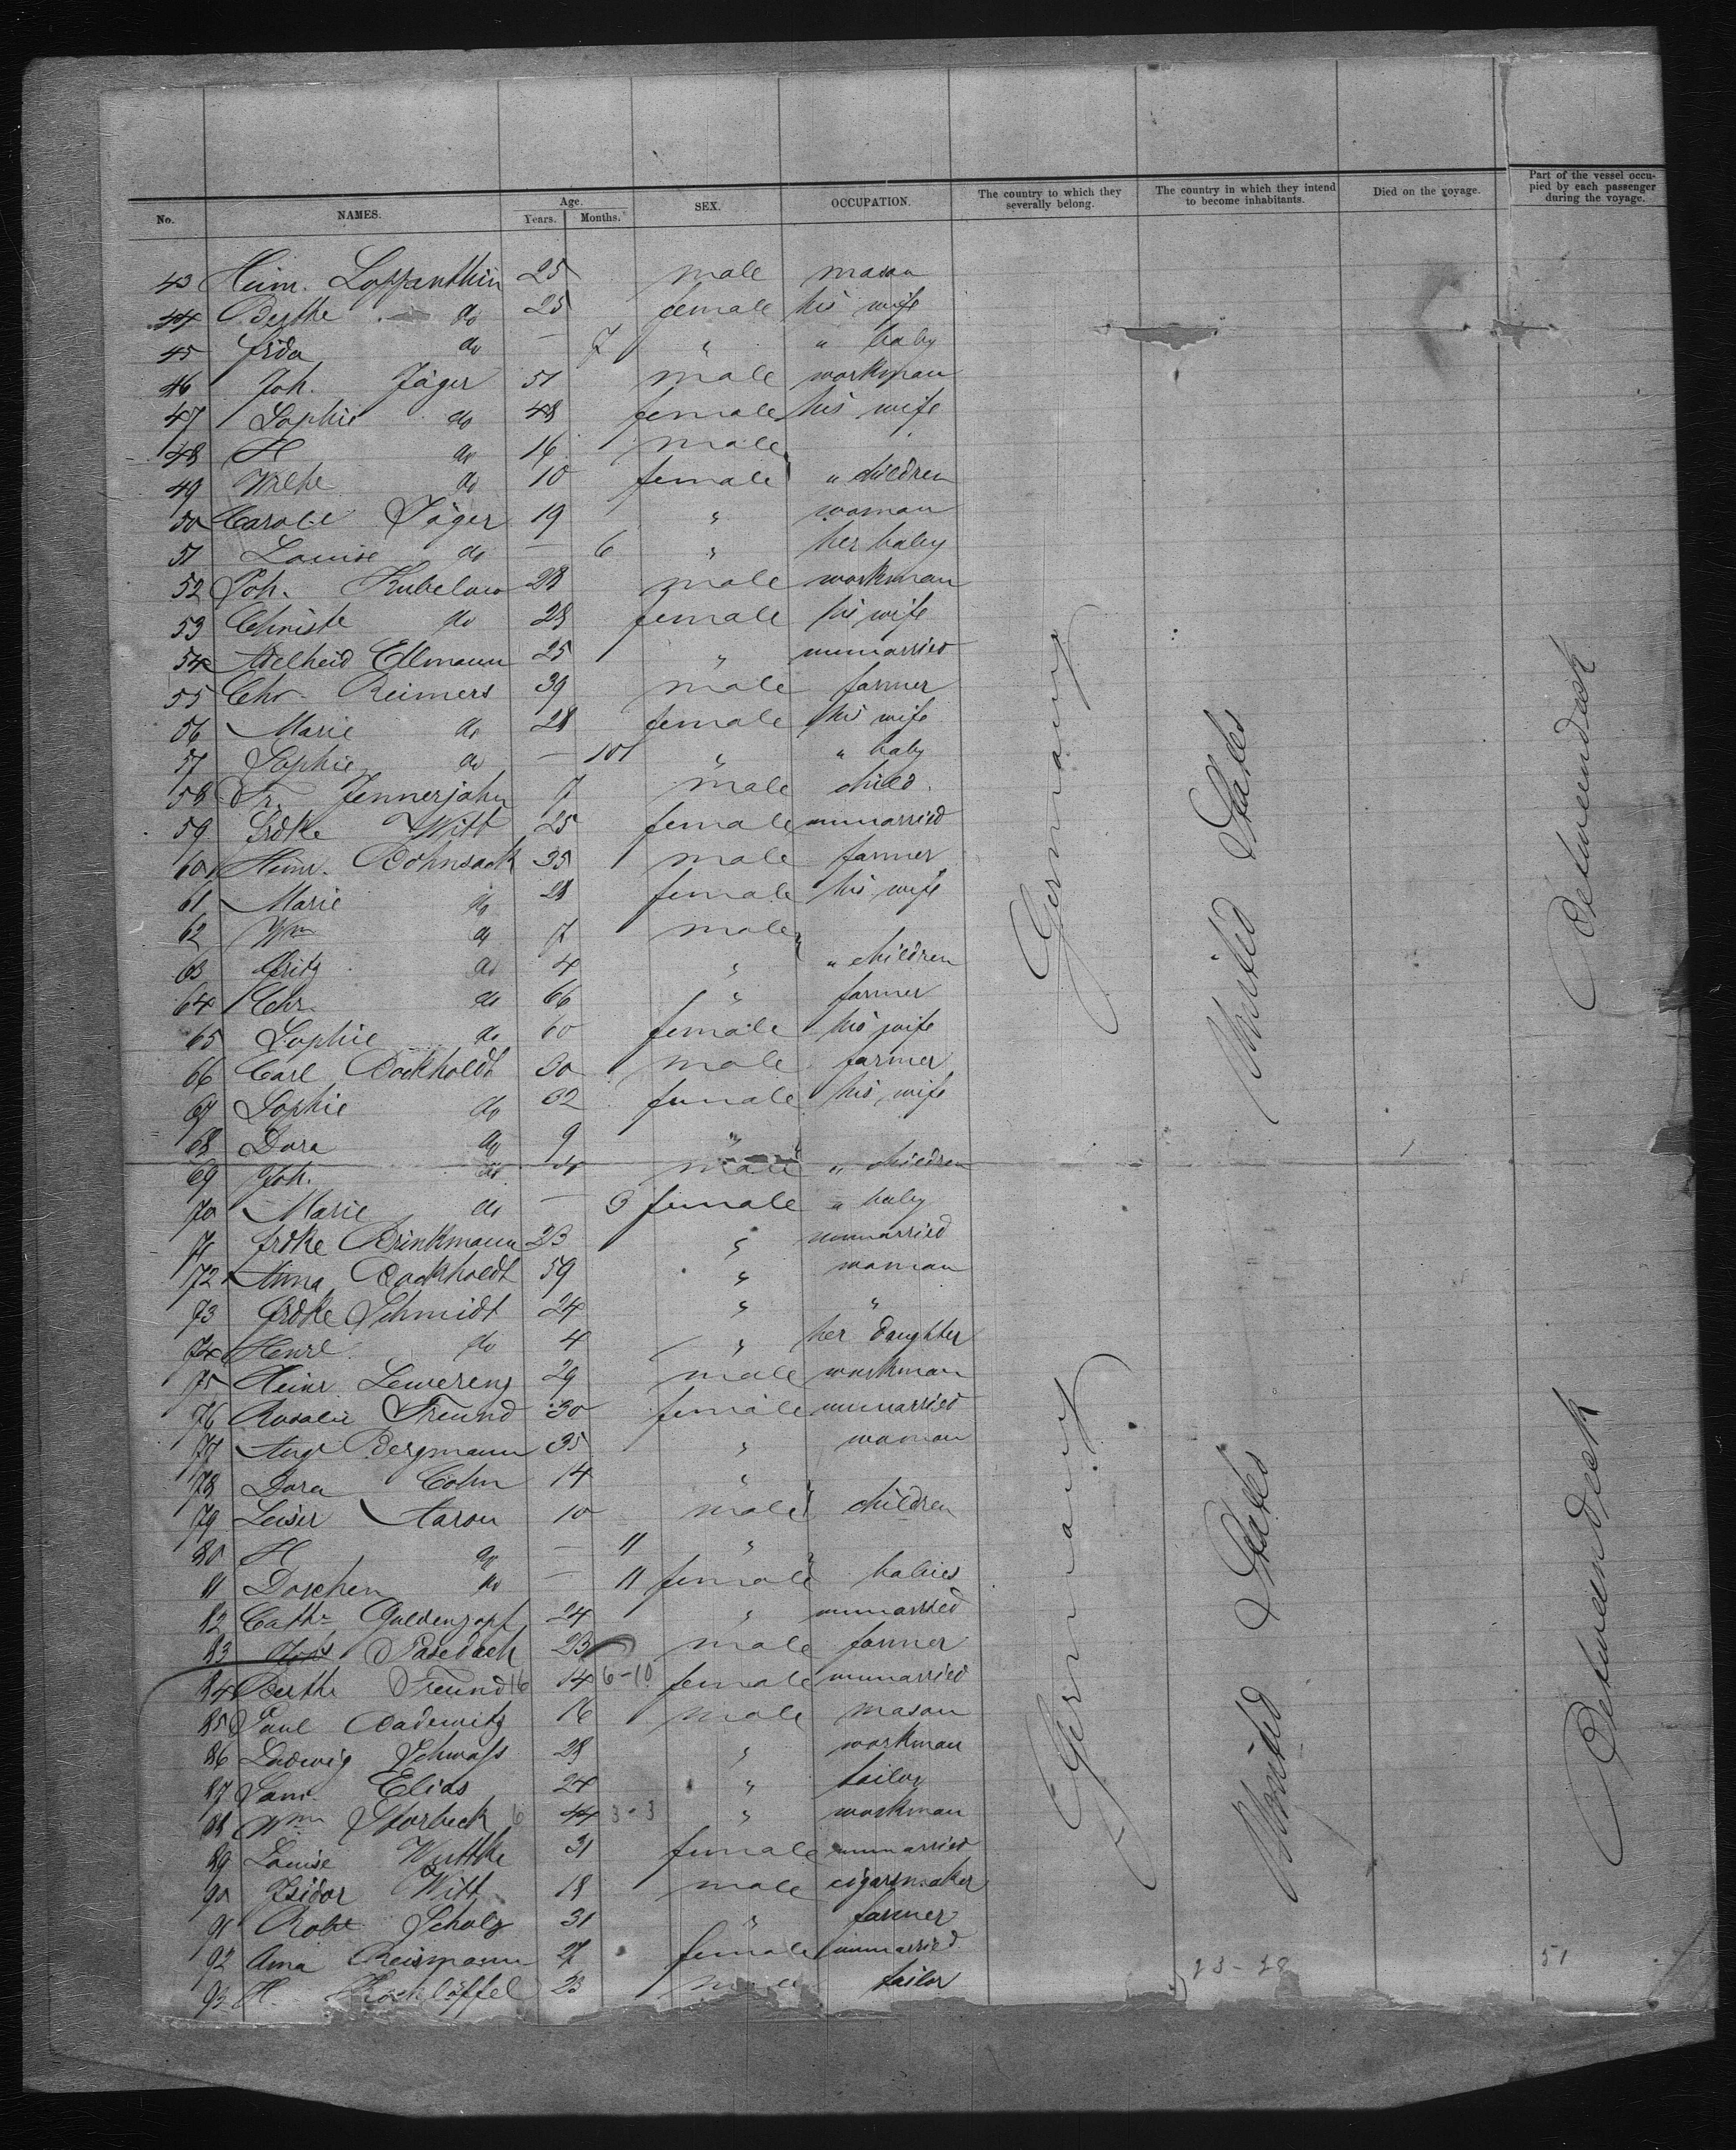 No. NAMES. Age. Years. Months. SEX. OCCUPATION. The country to which they severally belong. The country in which they intend to become inhabitants. Died on the voyage. Part of the vessel occupied by each passenger during the voyage.
43 Heinr. 25 male mason
44 Berthe do 25 female his wife
45 Frida do — 7 " " baby
46 Joh. Jäger 51 male workman
47 Sophie do 48 female his wife
48 H do 16 male
49 Wilhe do 10 female " children
50 Carole Jäger 19 " woman
51 Louise do — 6 " her baby
52 Joh. Kubelow 28 male workman
53 Christe do 28 female his wife
54 Adelheid Ellmann 25 " unmarried
55 Chr. Reimers 39 male farmer
56 Marie do 28 female his wife
57 Sophie do — 10 " " baby
58 Fr. Jennerjahn 7 male child.
59 Frdke Witt 25 female unmarried
60 Heinr. Bohnsack 35 male farmer
61 Marie do 28 female his wife
62 Wm do 7 male
63 Fritz do 4 " " children
64 Chr. do 66 " farmer
65 Sophie do 60 female his wife
66 Carl Bockholdt 30 male farmer
67 Sophie do 32 female his wife
68 Dora do 9 "
69 Joh. do 4 male " children
70 Marie do — 3 female " baby
71 Frdke Brinkmann 23 " unmarried
72 Anna Bockholdt 59 " woman
73 Frdke Schmidt 24 " "
74 Henrl. do 4 " her daughter
75 Heinr Lewerenz 29 male workman
76 Rosalie Freund 30 female unmarried
77 Aug. Bergmann 35 " woman
78 Dora Cohn 14 "
79 Leiser Aaron 10 male children
80 H do — 11 "
81 Dorchen do — 11 female babies
82 Cathr Guldenzopf 24 " unmarried
83 Johs Pasebach 23 male farmer
84 Berthe Freund 16 14 6-10 female unmarried
85 Paul Badewitz 16 male mason
86 Ludwig Schwass 28 " workman
87 Sam. Elias 24 " tailor
88 Wm Storbeck 6 44 3-3 " workman
89 Louise Wuttke 31 female unmarried
90 Isidor Witt 18 male cigarmaker
91 Robt Scholz 31 " farmer
92 Anna Reismann 27 female unmarried
93 H. Kochlöffel 23 male tailor
Germany
United States
Betweendeck
Germany
United States
Betweendeck
51